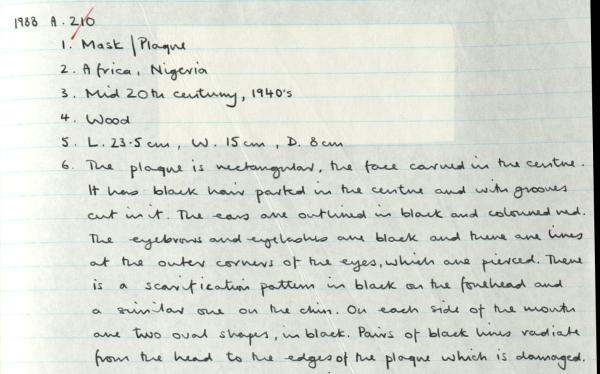 1988 A. 210
1. Mask / Plaque
2. Africa, Nigeria
3. Mid 20th century, 1940's
4. Wood
5. L. 23.5 cm, W. 15 cm, D. 8 cm
6. The plaque is rectangular, the face carved in the centre.
It has black hair parted in the centre and with grooves
cut in it. The ears are outlined in black and coloured red.
The eyebrows and eyelashes are black and there are lines
at the outer corners of the eyes, which are pierced. There
is a scarification pattern in black on the forehead and
a similar one on the chin. On each side of the mouth
are two oval shapes, in black. Pairs of black lines radiate
from the head to the edges of the plaque which is damaged.